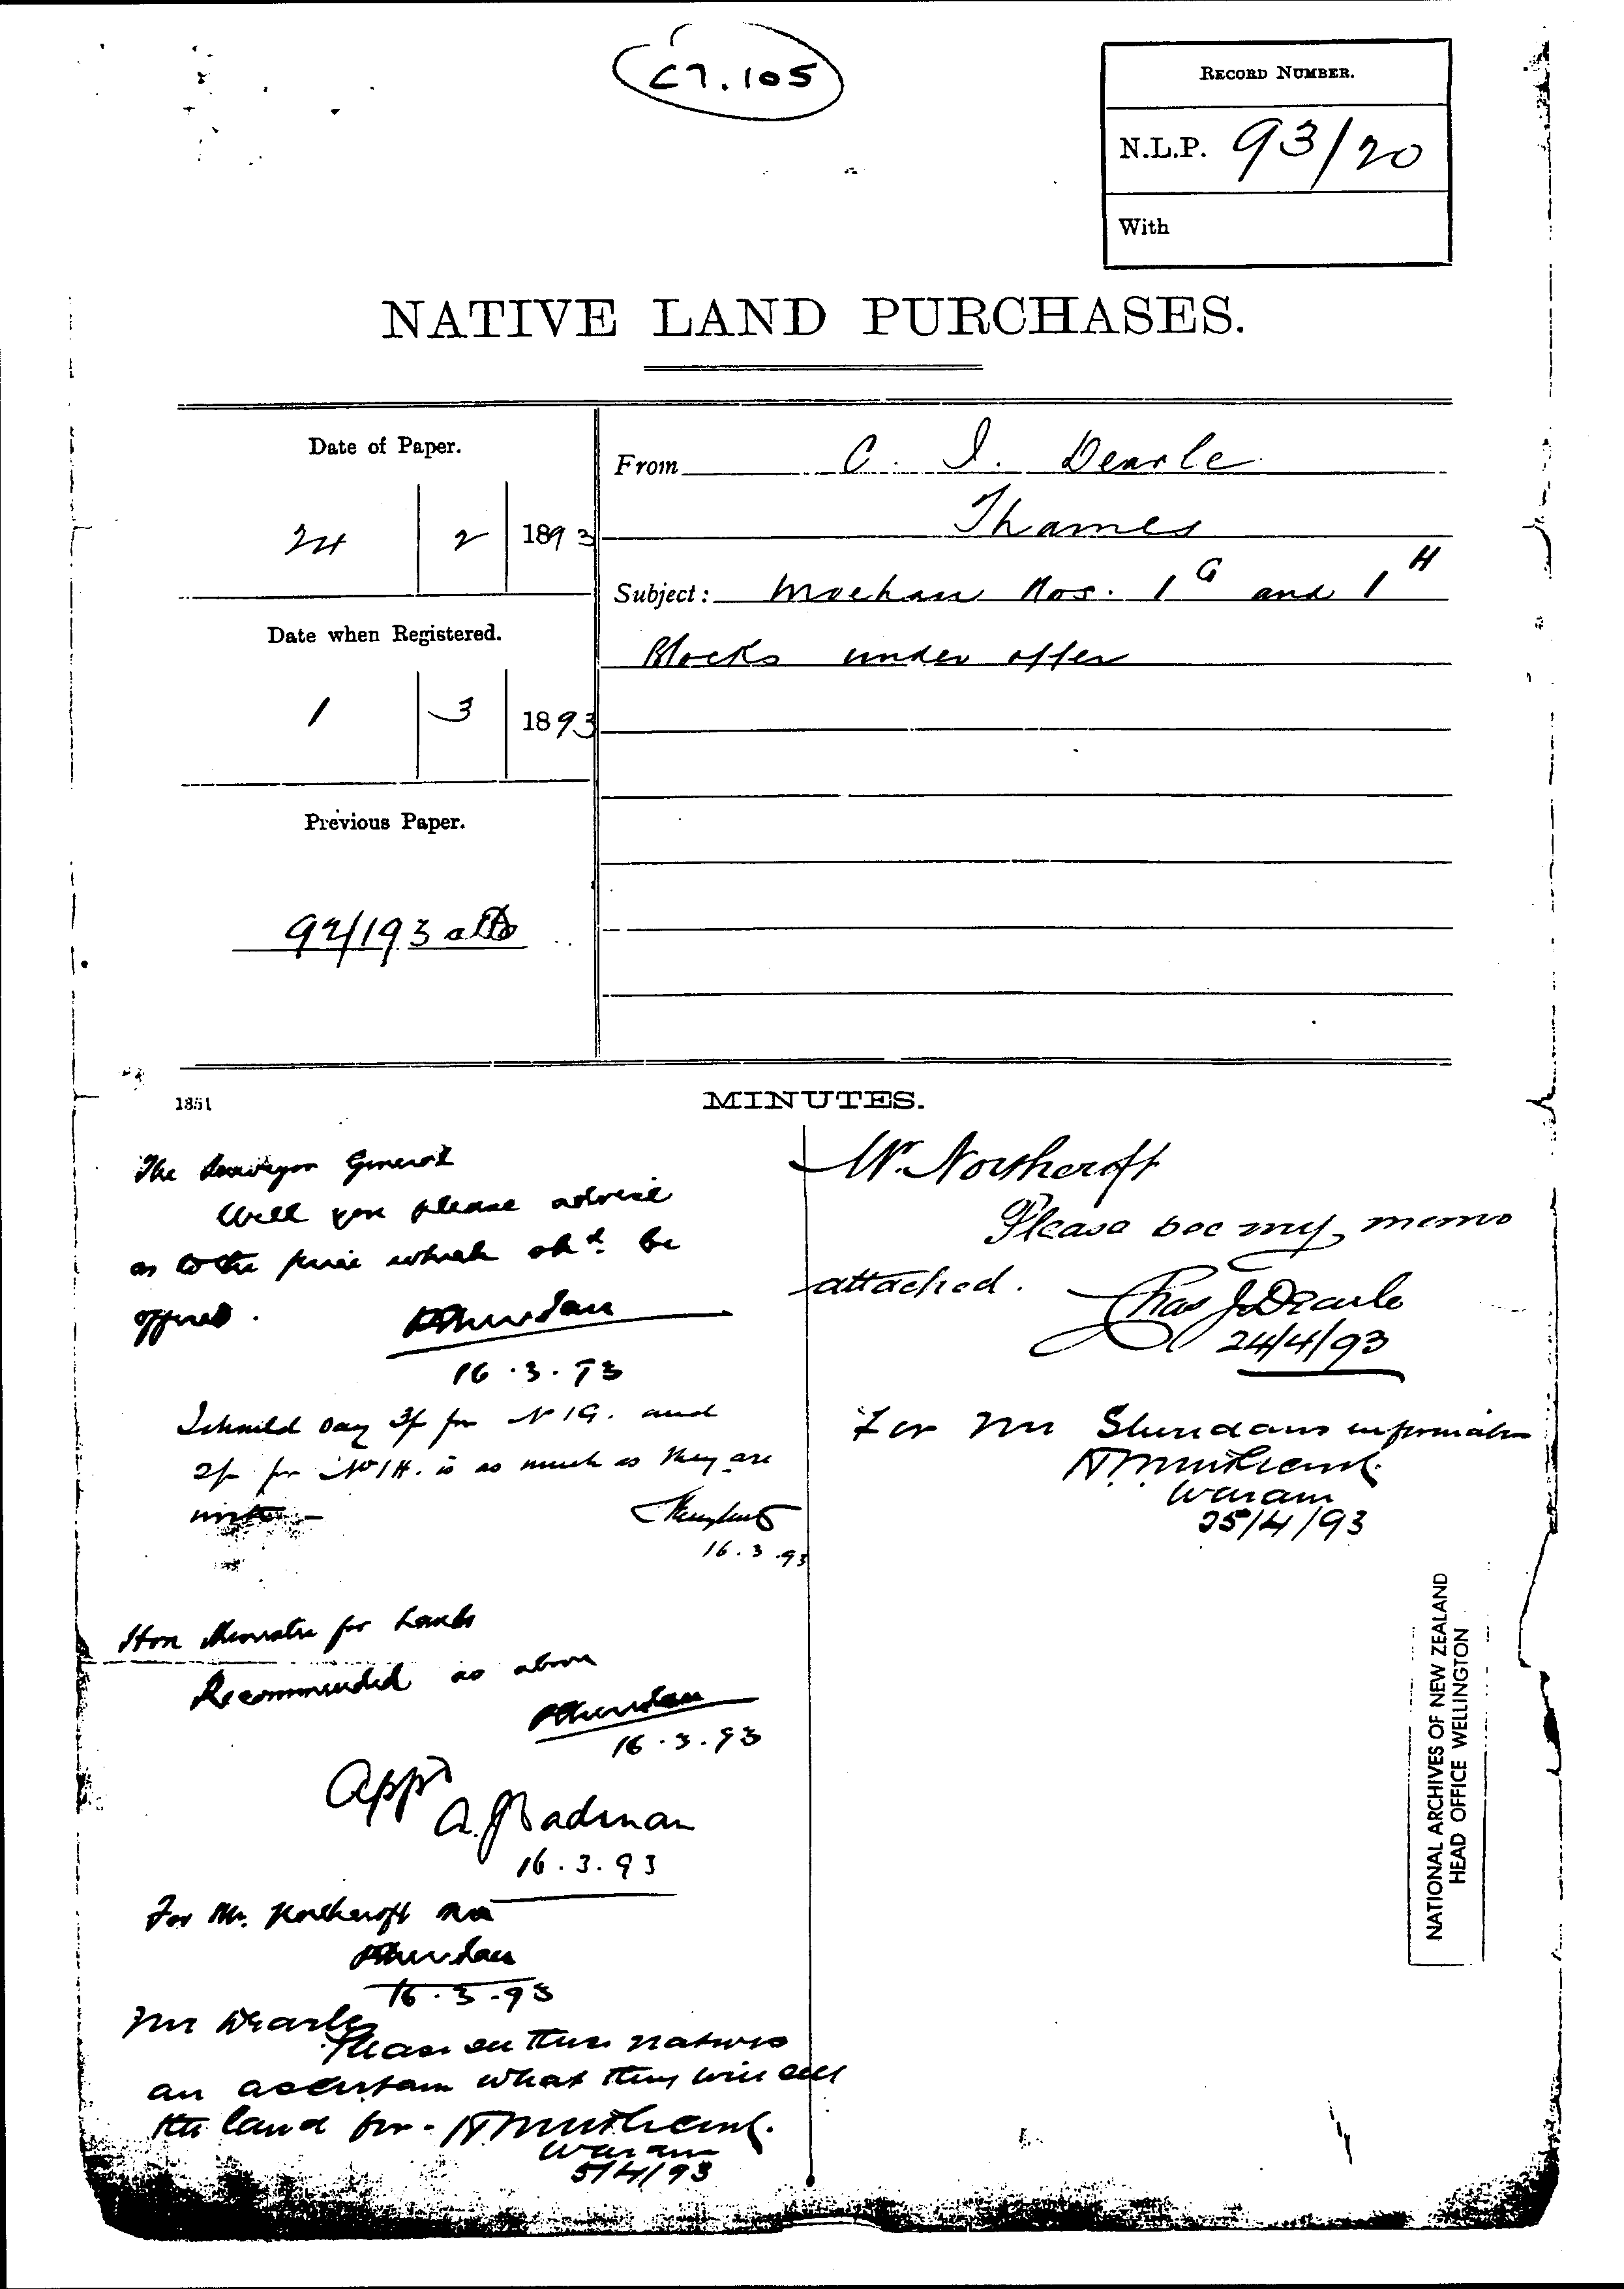 C7.105
RECORD NUMBER.
N.L.P. 93/20
With
NATIVE LAND PURCHASES.
Date of Paper.
24 2 1893
Date when Registered.
1 3 1893
Previous Paper.
92/193 atto
From C. J. Dearle
Thames
Subject: Moehau Nos. 1G and 1H
Blocks under offer
1351
MINUTES.
The Surveyor General
Will you please advise
as to the price which shd. be
offered.
PSheridan
16.3.93
I should say 3/- for No 1G. and
2/- for No 1H. is as much as they are
worth –
16.3.93
Hon Minister for Lands
Recommended as above
PSheridan
16.3.93
Appd
A. J. Cadman
16.3.93
For Mr. Northcroft RM
PSheridan
16.3.93
Mr Dearle
Please see these natives
an ascertain what they will sell
the land for - H W Northcroft.
5/4/93
Mr. Northcroft
Please see my memo
attached.
Chas J Dearle
24/4/93
For Mr Sheridans information
H W Northcroft.
25/4/93
NATIONAL ARCHIVES OF NEW ZEALAND
HEAD OFFICE WELLINGTON